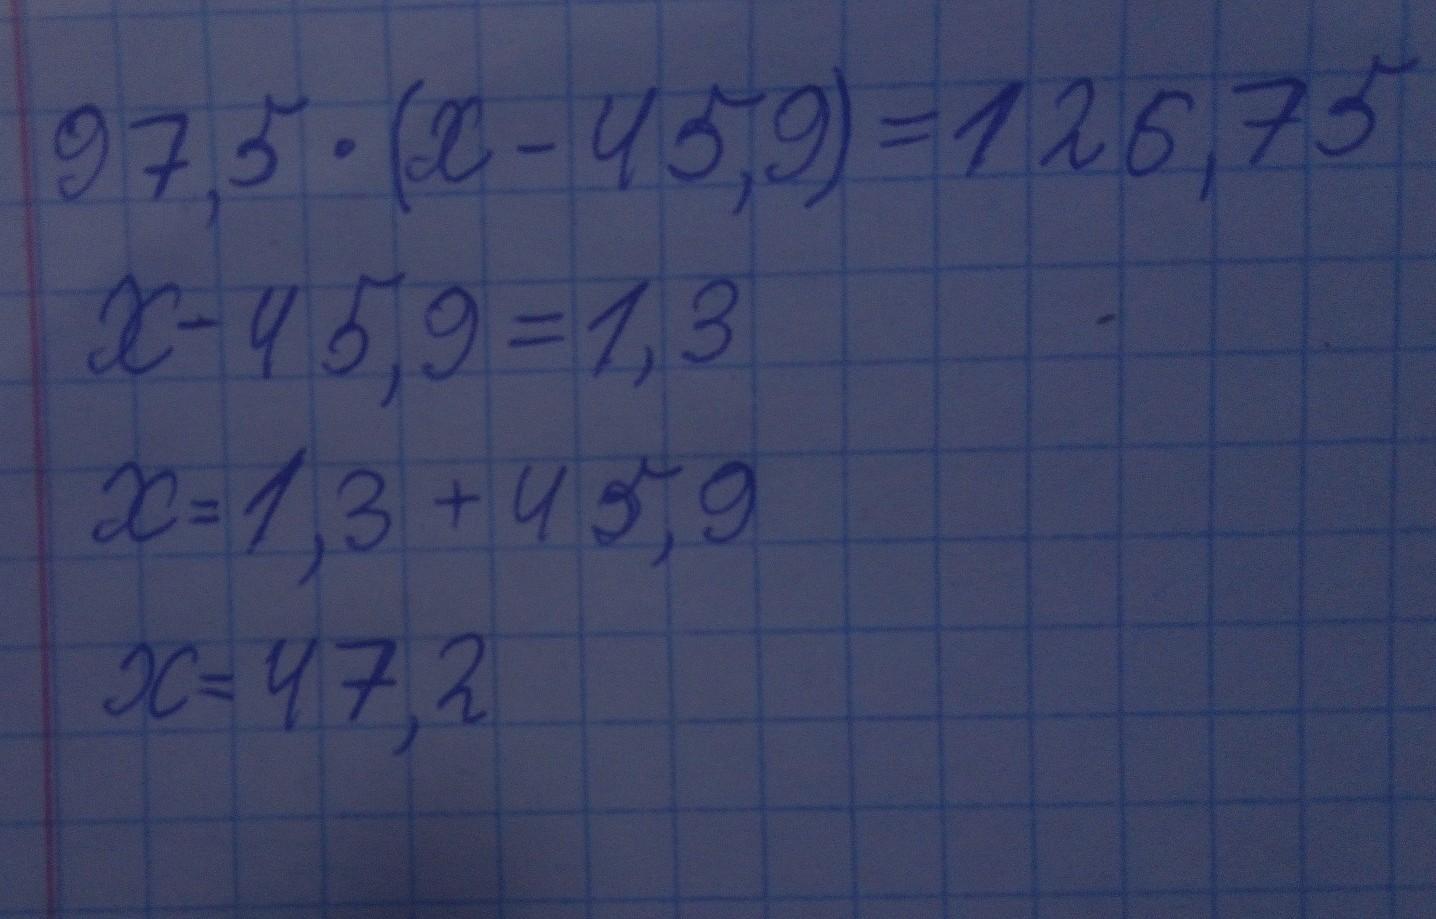 97,5 · (x - 45,9) = 126,75
x - 45,9 = 1,3
x = 1,3 + 45,9
x = 47,2